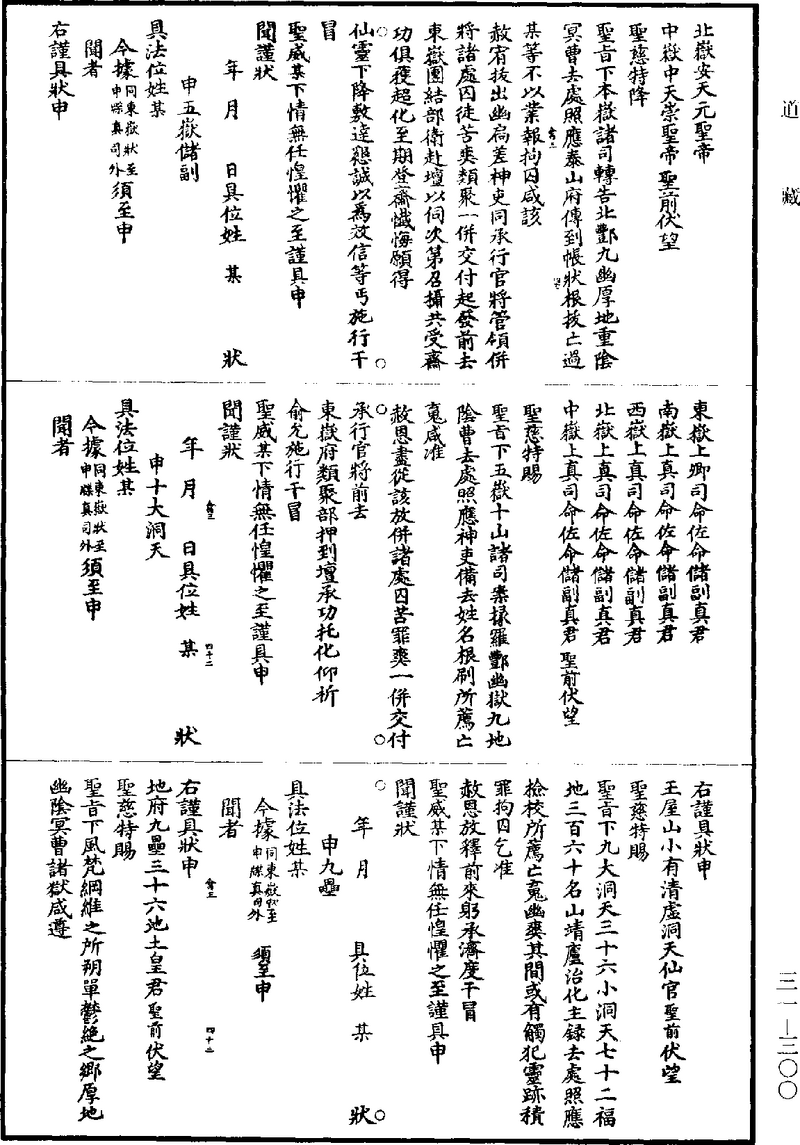 道藏
北嶽安天元聖帝
中嶽中天崇聖帝 聖前伏望
聖慈特降
聖旨下本嶽諸司轉告北酆九幽厚地重陰
冥曹去處照應泰山府傳到帳狀根拔亡過
某等不以業報拘囚咸該
赦宥拔出幽扃差神吏同承行官將管領併
將諸處囚徒苦爽類聚一併交付起發前去
東嶽團結部衛赴壇以伺次第召攝共受齋
功俱獲超化至期登齋懺悔願得
仙靈下降敷達懇誠以爲效信等丐施行干
冒
聖威某下情無任惶懼之至謹具申
聞謹狀
年 月 日具位姓 某 狀
申五嶽儲副
具法位姓某
今據同東嶽狀至申牒真司外須至申
聞者
右謹具狀申
東嶽上卿司命佐命儲副真君
南嶽上真司命佐命儲副真君
西嶽上真司命佐命儲副真君
北嶽上真司命佐命儲副真君
中嶽上真司命佐命儲副真君 聖前伏望
聖慈特賜
聖旨下五嶽十山諸司案掾羅酆幽獄九地
陰曹去處照應神吏備去姓名根刷所薦亡
䰟咸准
赦恩盡從該放併諸處囚苦罪爽一併交付
承行官將前去
東嶽府類聚部押到壇承功托化仰祈
俞允施行干冒
聖威某下情無任惶懼之至謹具申
聞謹狀
年 月 日具位姓 某 狀
申十大洞天
具法位姓某
今據同東嶽狀至申牒真司外須至申
聞者
右謹具狀申
王屋山小有清虛洞天仙官聖前伏望
聖慈特賜
聖旨下九大洞天三十六小洞天七十二福
地三百六十名山靖廬治化主錄去處照應
撿校所薦亡䰟幽爽其間或有觸犯靈跡積
罪拘囚乞准
赦恩放釋前來躬承濟度干冒
聖威某下情無任惶懼之至謹具申
聞謹狀
年 月 具位姓 某 狀
申九壘
具法位姓某
今據同東嶽狀至申牒真司外 須至申
聞者
右謹具狀申
地府九壘三十六地土皇君聖前伏望
聖慈特賜
聖旨下風梵綱維之所朔單鬱絶之鄉厚地
幽陰冥曹諸獄咸遵
三一—三〇〇